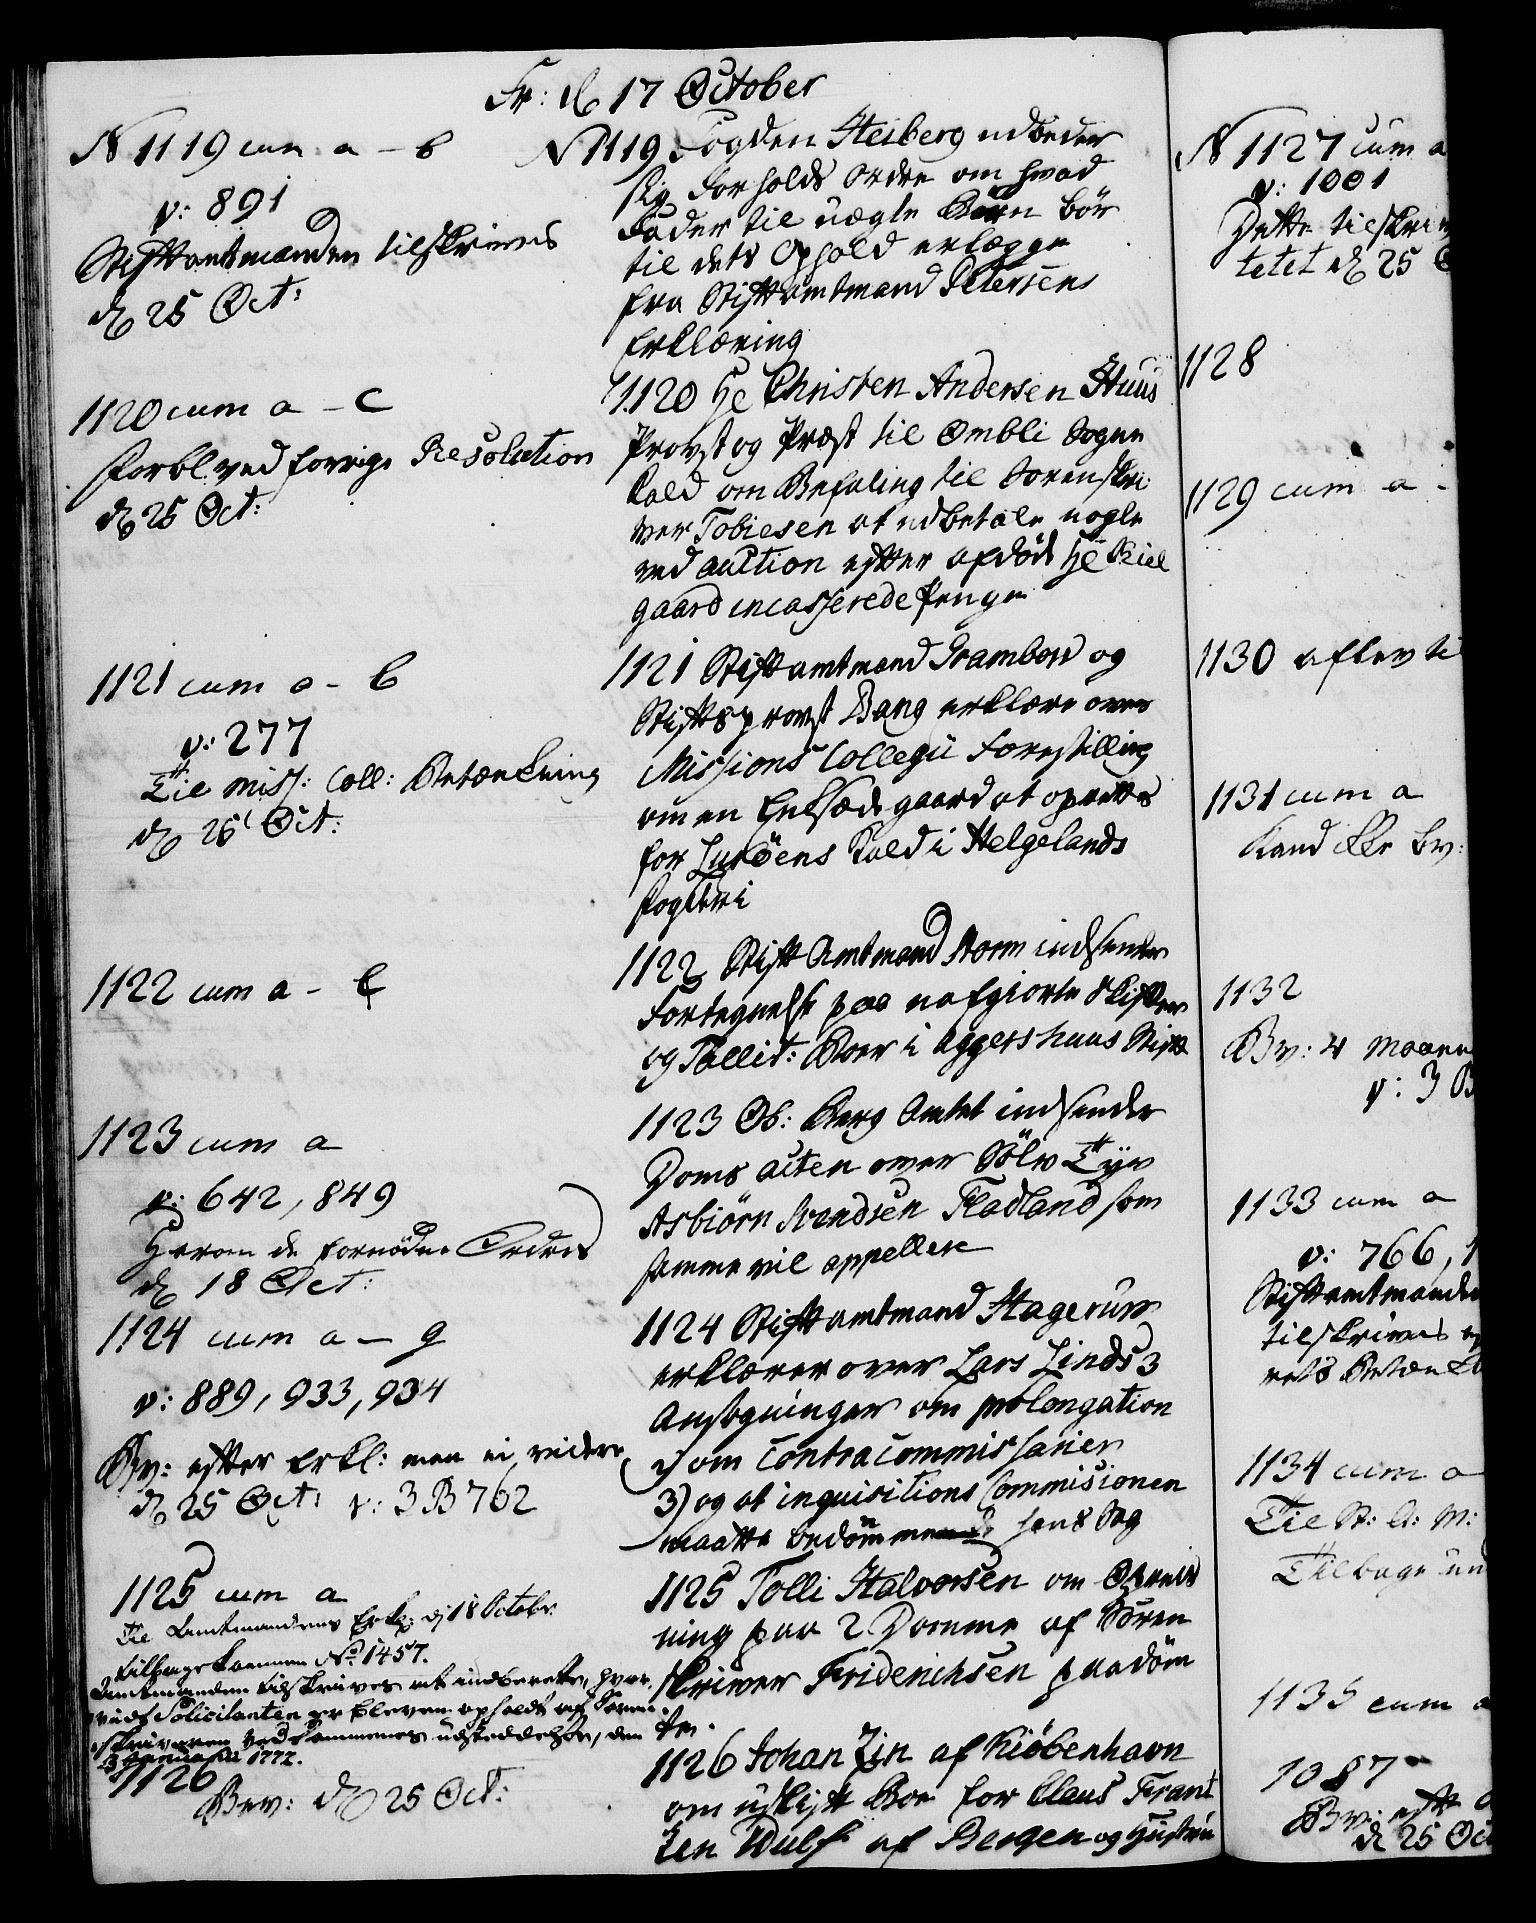 Fr: d 17 October
N 1119 cum a - b
v: 891
Stiftamtmanden tilskrives
d 25 Oct:
N 1119 Fogden Heiberg udbeder
sig Forholds Ordre om hvad
Fader til uægte Børn bør
til dets Ophold erlægge
fra Stiftamtmand Petersens
Erklæring
1120 cum a - c
forbl. ved forrige Resolution
d 25 Oct:
1120 Hr Christen Andersen Huus
Provst og Præst til Ombli Sogne
Kald om Befaling til Sorenskri
ver Tobiesen at udbetale nogle
ved auction efter afdøde Hr Kiel
gaard incasserede Penge
1121 cum a - b
v: 277
Til Miss: Coll: Betænkning
d 25 Oct:
1121 Stiftamtmand Grambow og
Stiftsprovst Bang erklære over
Missions Collegii Forestilling
om en Enkesædegaard at oprette
for Lurøens Kald i Helgelands
fogderi
1122 cum a - c
1122 Stift Amtmand Storm indsender
Fortegnelse paa uafgiorte Skifter
og Fallit: Boer i Aggershuus Stift
1123 cum a
v: 642, 849
Herom de fornødne Ordres
d 18 Oct:
1123 Ob: Berg Amtet indsender
Doms acten over Sølv Tyv
Asbiørn Svendsen Fladland som
samme vil appellere
1124 cum a - g
v: 889, 933, 934
Bev: efter Erkl: men ei videre
d 25 Oct: v: 3 B 762
1124 Stiftamtmand Hagerup
erklærer over Lars Linds 3
Ansøgninger om prolongation
2) om Contracommissarier
3) og at inquisitions Commisionen
maatte bedømme hans Sag
1125 cum a
Til Amtmandens Erkl: d 18 Octobr.
tilbagekommen No 1457.
Amtmanden tilskrives at indberette, hvor
vidt Solicitanten er bleven opholdt af Soren
skriveren ved Dommenes udstædelse, den
Januarii 1772.
1125 Tolli Halvorsen om Opreis
ning paa 2 Domme af Soren
skriver Friderichsen paadøm
te.
1126
Bev: d 25 Oct:
1126 Johan Zin af Kiøbenhavn
om uskift Boe for Claus Frant
zen Wulf af Bergen og Hustrue
N 1127 cum a
v: 1001
Dette tilskriv
tetet d 25
1128
1129 cum a -
1130 aflev ti
1131 cum a
Kand ikke bev:
1132
Bev: 4 Maane
v: 3 B
1133 cum a
v: 766, 1
Stiftamtmanden
tilskrives
rets Betænk
1134 cum a
Til St: A: M:
Tilbage
1135 cum a
1087
Bev: eft
d 25 Oct